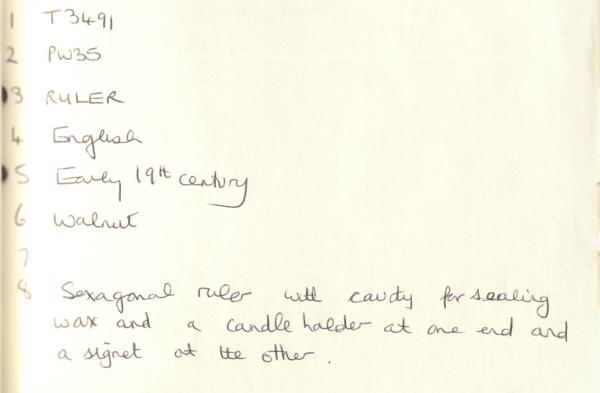 1 T3491
2 PW35
3 RULER
4 English
5 Early 19th century
6 Walnut
7
8 Sexagonal ruler with cavity for sealing
wax and a candle holder at one end and
a signet at the other.